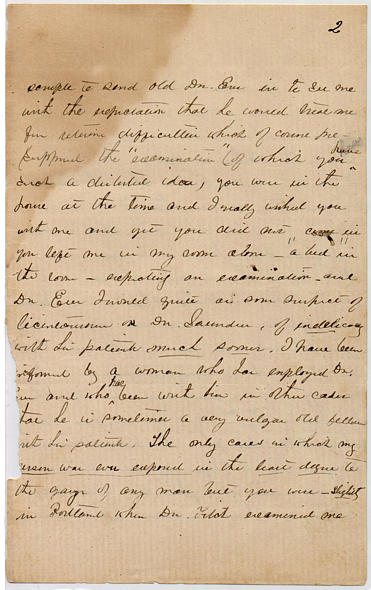 2
scruple to send old Dr. in to see me
with the expectation that he would treat me
for uterine difficulties which of course pre-
supposed the "examination" (of which you have
such a distorted idea, you were in the
house at the time and I really wished you
with me and yet you did not come in
you kept me in my room alone - "a bed in
the room" - expecting an examination - and
Dr. I would quite as soon suspect of
licentiousness as Dr. Saunders, of indelicacy
with his patients much sooner. I have been
informed by a woman who has employed Dr.
and who has been with him in other cases
that he is sometimes a very vulgar old fellow
with his patients. The only cases in which my
person was ever exposed in the least degree to
the gaze of any man but you were - slightly
in Portland when Dr. examined me